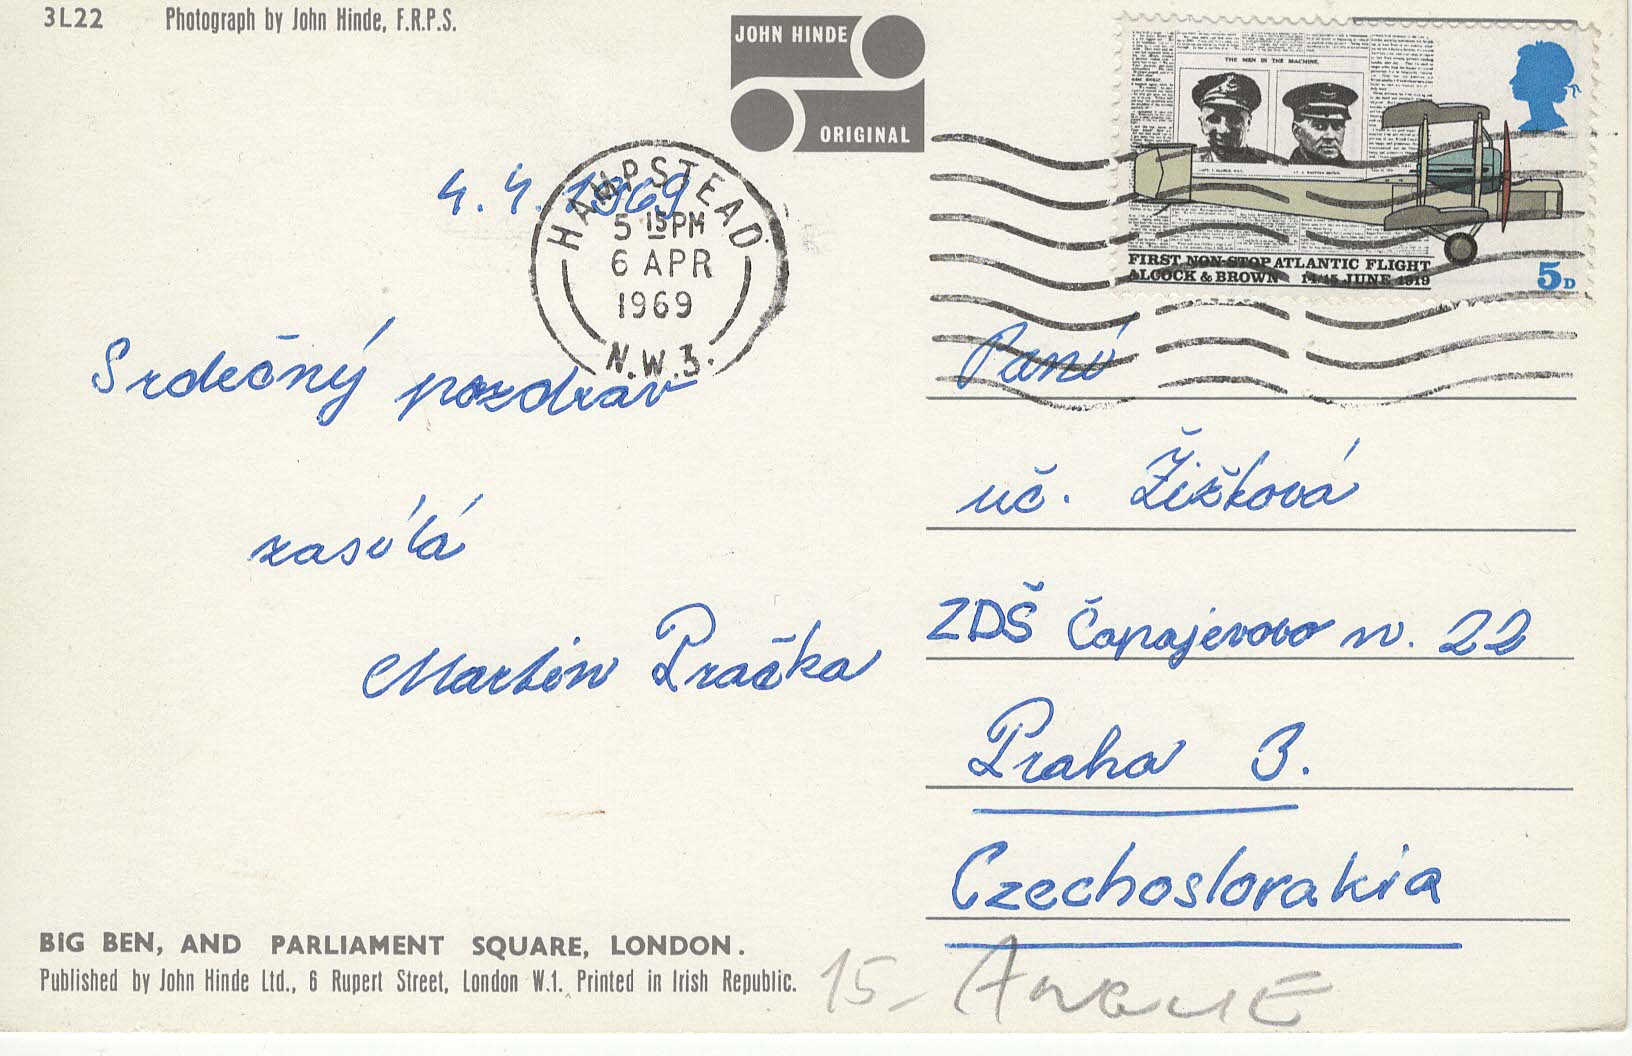 3L22 Photograph by John Hinde, F.R.P.S.
JOHN HINDE
ORIGINAL
THE MEN IN THE MACHINE.
FIRST NON-STOP ATLANTIC FLIGHT
ALCOCK & BROWN 14-15 JUNE 1919
5D
HAMPSTEAD
5 15 PM
6 APR
1969
N.W.3.
4. 4. 1969
Srdečný pozdrav
zasílá
Martin Pračka
Paní
uč. Žižková
ZDŠ Čapajevovo n. 22
Praha 3.
Czechoslovakia
BIG BEN, AND PARLIAMENT SQUARE, LONDON.
Published by John Hinde Ltd., 6 Rupert Street, London W.1. Printed in Irish Republic.
15-